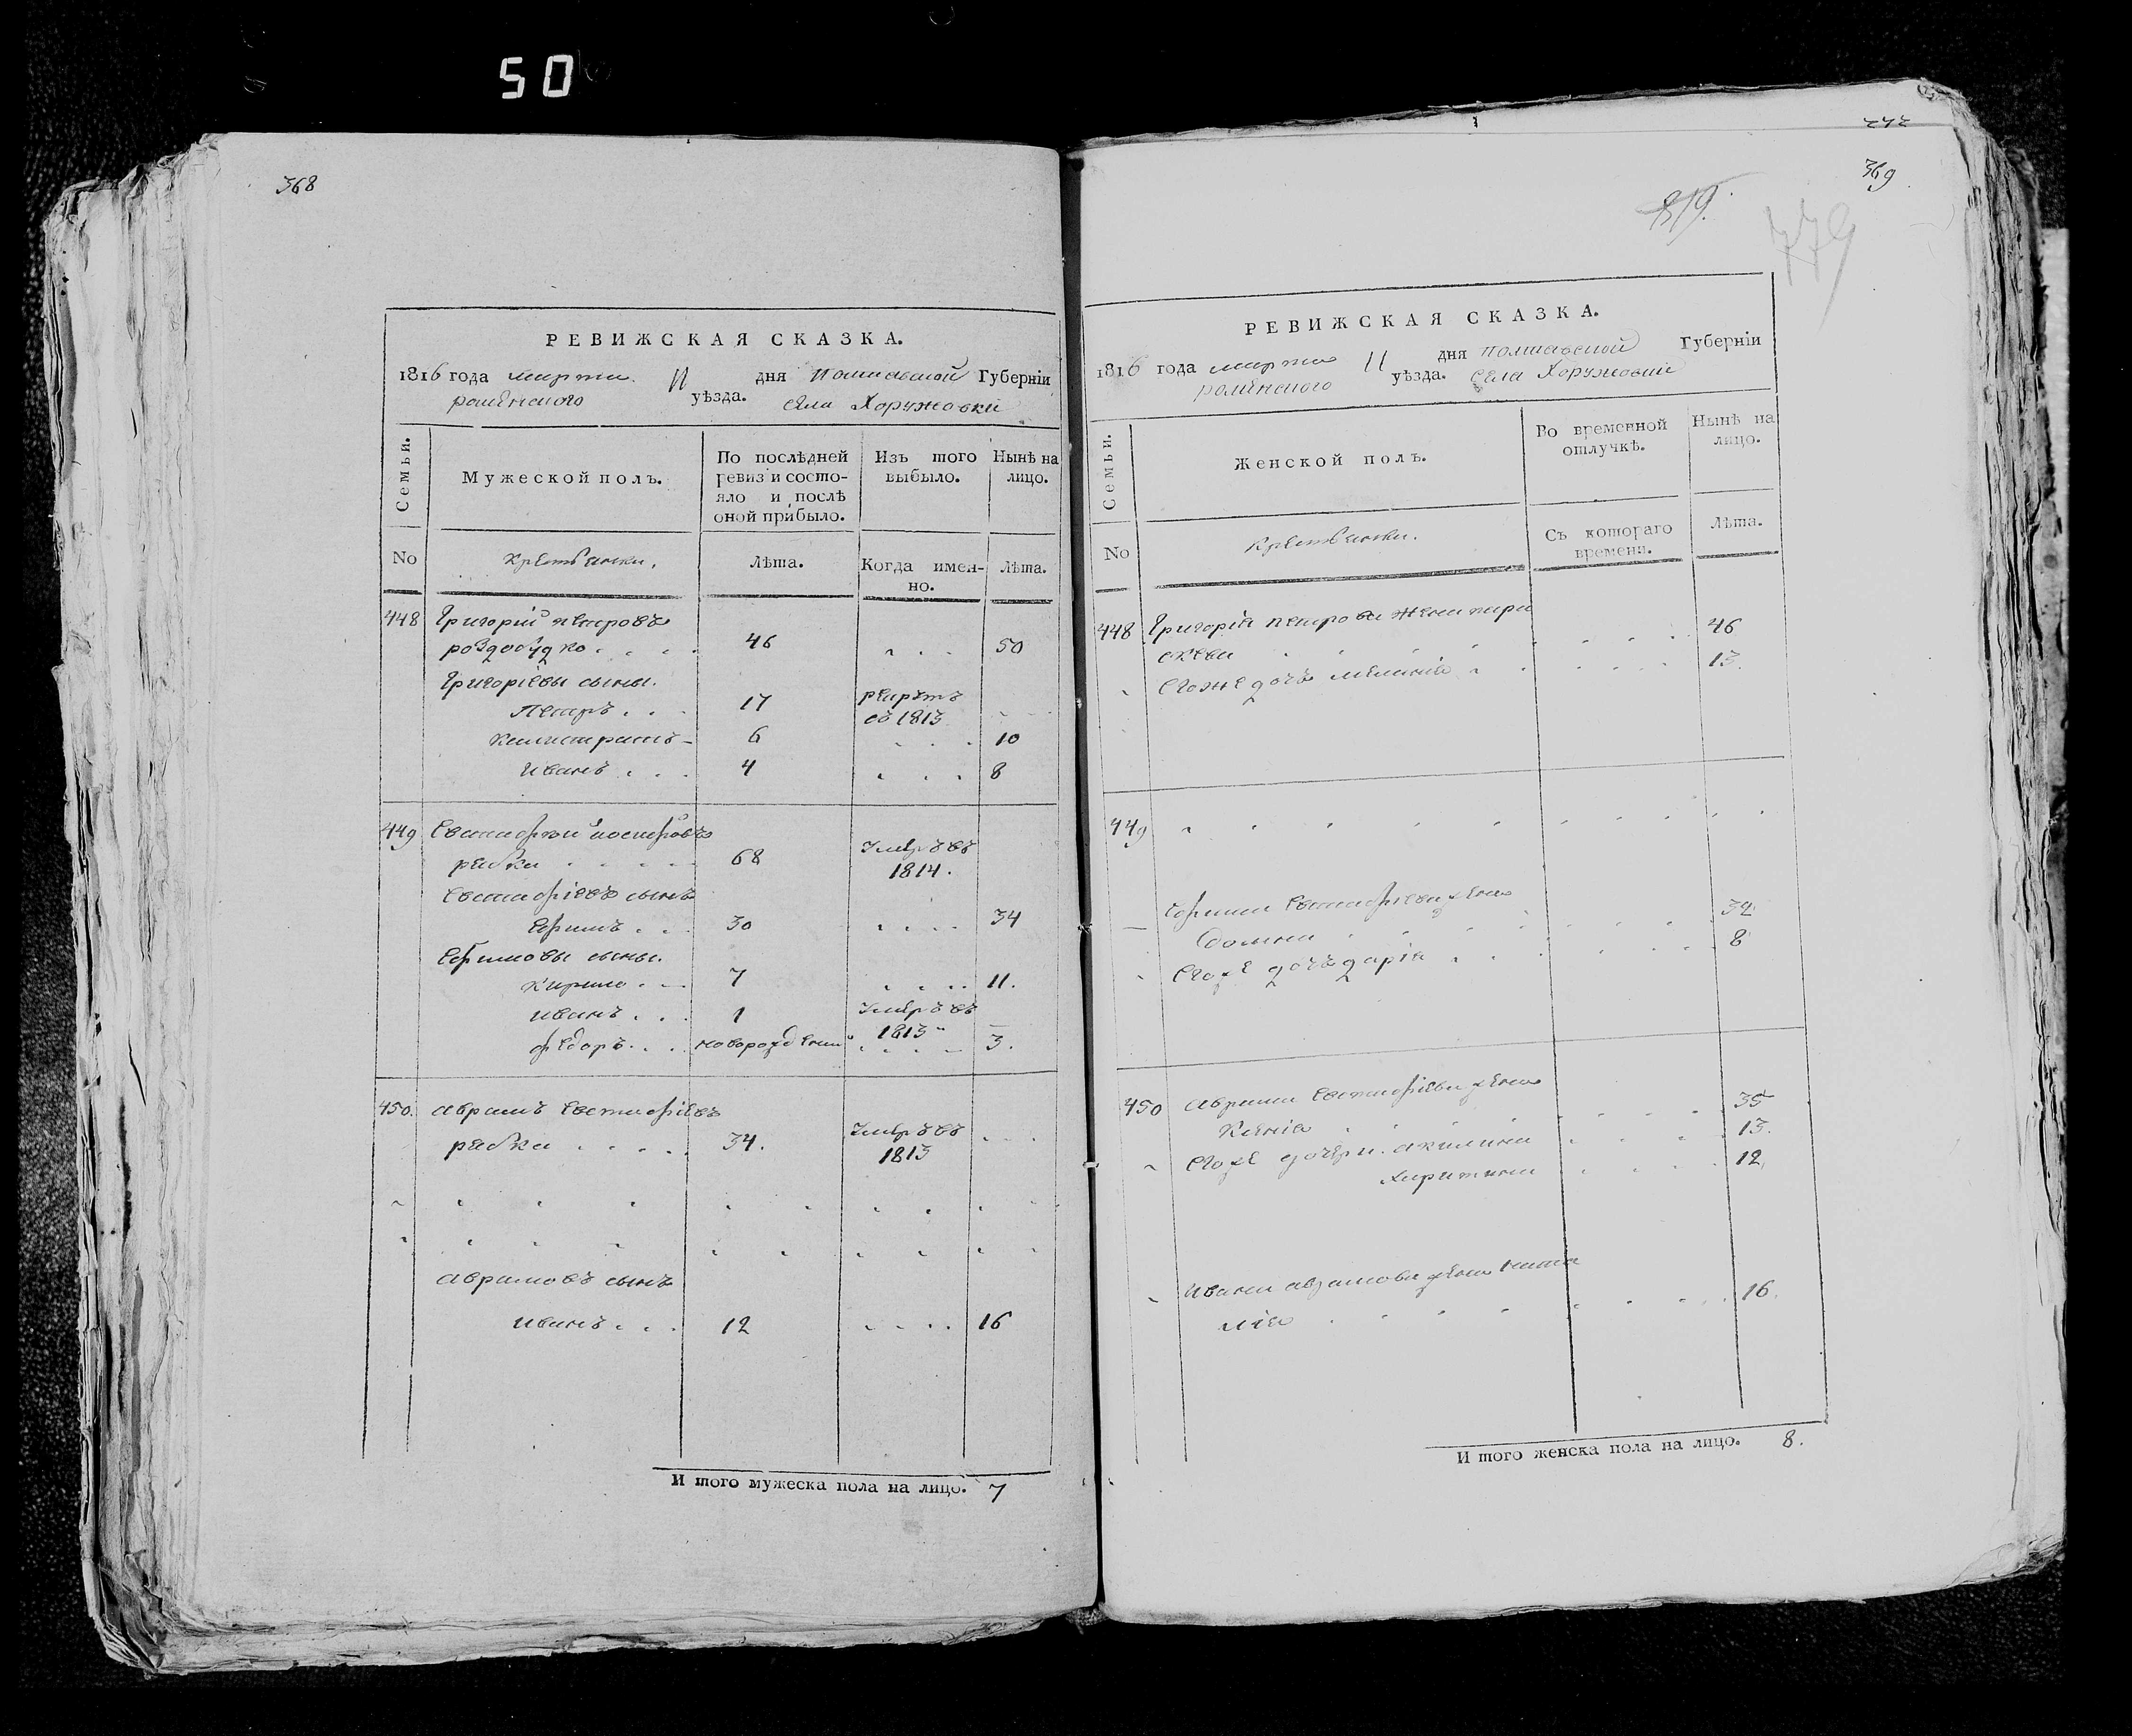 50
368
РЕВИЖСКАЯ СКАЗКА.
1816 года марта 11 дня Полтавской Губерніи
роменского уѣзда. села Хоружовки
Семьи.
Мужеской полъ.
По послѣдней ревизіи состояло и послѣ оной прибыло.
Изъ того выбыло.
Нынѣ на лицо.
No
Крестьянки.
Лѣта.
Когда именно.
Лѣта.
448 Григорій петровъ
роздобудко 46 50
Григоріевы сыны.
Петръ 17 рекрутъ
съ 1813
Калистратъ 6 10
Иванъ 4 8
449 Евстафій
рябка 68 Умръ въ
1814.
Евстафіевъ сынъ
Ефимъ 30 34
Ефимовы сыны.
Кирило 7 11.
Иванъ 1 Умръ въ
1813
федоръ новорожденный 3.
450. Аврамъ Евстафіевъ
рябка 34. Умръ въ
1813
Аврамовъ сынъ
Иванъ 12 16
И того мужеска пола на лицо. 7
369
779
РЕВИЖСКАЯ СКАЗКА.
1816 года марта 11 дня полтавской Губерніи
роменского уѣзда. села Хоружовки
Семьи.
Женской полъ.
Во временной отлучкѣ.
Нынѣ на лицо.
No
Крестьянки.
Съ котораго времени.
Лѣта.
448 Григорія петрова жена пара
скева 46
Его же дочь меланія 13.
449
Ефима Евстафіева жена
Домна 32
Его же дочь дарія 8
450 Аврама Евстафіева жена
Ксенія 35
Его же дочери. акилина 13.
харитина 12
Ивана аврамова жена ната
лія 16.
И того женска пола на лицо. 8.